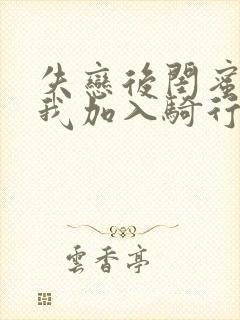 失戀後閨蜜
我加入騎行
雲香亭